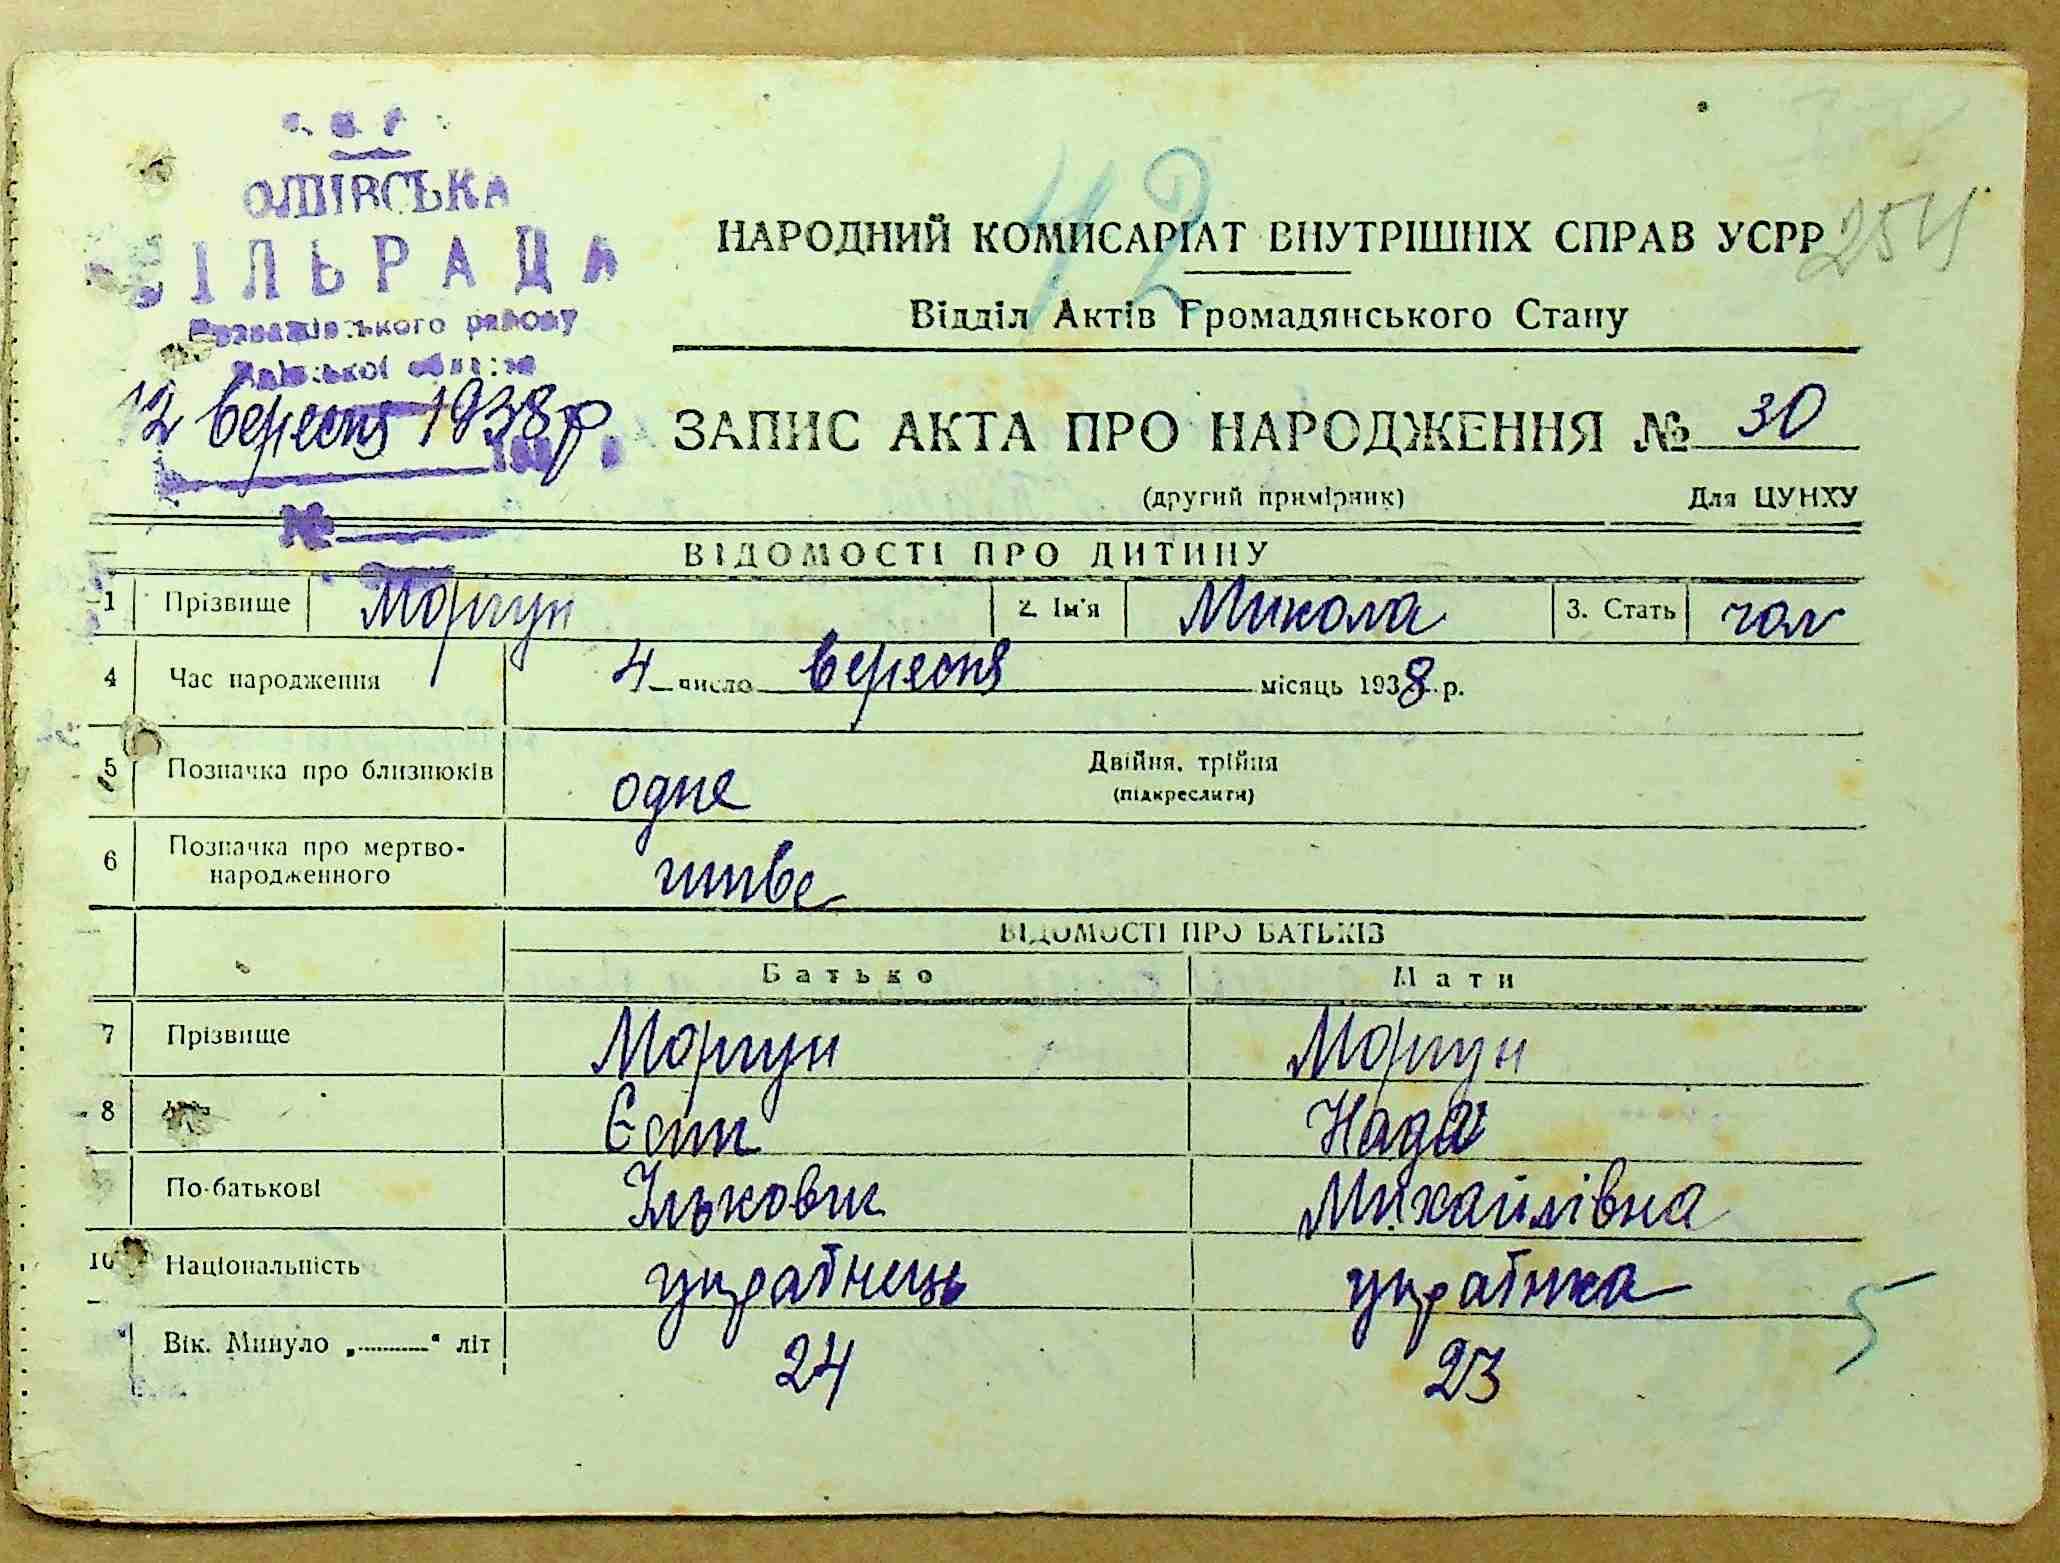 ІЛЬРАДА
району
12 вересня 1938 р.
№
42
254
НАРОДНИЙ КОМИСАРІАТ ВНУТРІШНІХ СПРАВ УСРР
Відділ Актів Громадянського Стану
ЗАПИС АКТА ПРО НАРОДЖЕННЯ № 30
(другий примірник) Для ЦУНХУ
ВІДОМОСТІ ПРО ДИТИНУ
1 Прізвище Моргун 2. Ім'я Микола 3. Стать чол
4 Час народження 4 число вересня місяць 1938 р.
5 Позначка про близнюків одне Двійня, трійня
(підкреслити)
6 Позначка про мертво-
народженного живе
ВІДОМОСТІ ПРО БАТЬКІВ
Батько Мати
7 Прізвище Моргун Моргун
8 Єсип Надя
По-батькові Ількович Михайлівна
10 Національність українець українка
Вік. Минуло „ “ літ 24 23
5